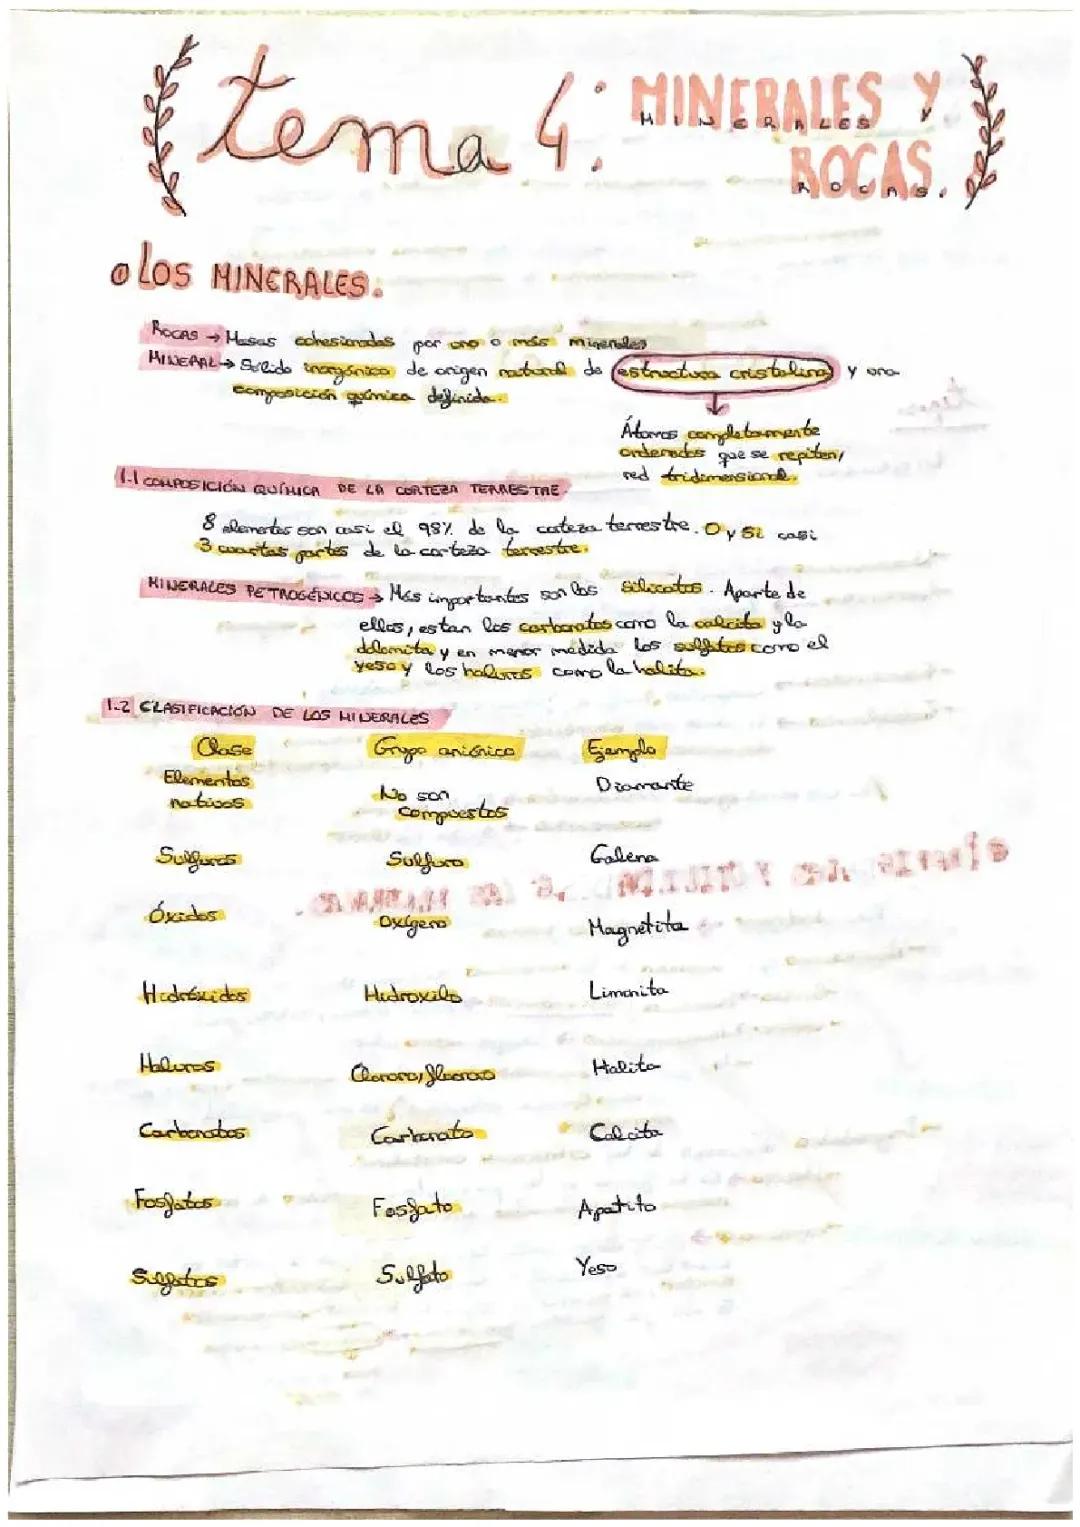 tema 4: MINERALES Y
ROCAS.
LOS MINERALES.
ROCAS → Masas cohesionadas por uno o más minerales
MINERAL → Sólido inorgánico de origen natural de estructura cristalina y una
composición química definida.
Átomos completamente
ordenados que se repiten,
red tridimensional.
1.1 COMPOSICIÓN QUÍMICA DE LA CORTEZA TERRESTRE
8 elementos son casi el 98% de la corteza terrestre. O y Si casi
3 cuartas partes de la corteza terrestre.
MINERALES PETROGÉNICOS → Más importantes son los silicatos. Aparte de
ellos, estan los carbonatos como la calcita y la
dolomita y en menor medida los sulfatos como el
yeso y los haluros como la halita.
1.2 CLASIFICACIÓN DE LOS MINERALES
Clase Grupo aniónico Ejemplo
Elementos nativos No son compuestos Diamante
Sulfuros Sulfuro Galena
Óxidos Oxígeno Magnetita
Hidróxidos Hidroxilo Limonita
Haluros Cloruro, fluoruro Halita
Carbonatos Carbonato Calcita
Fosfatos Fosfato Apatito
Sulfatos Sulfato Yeso